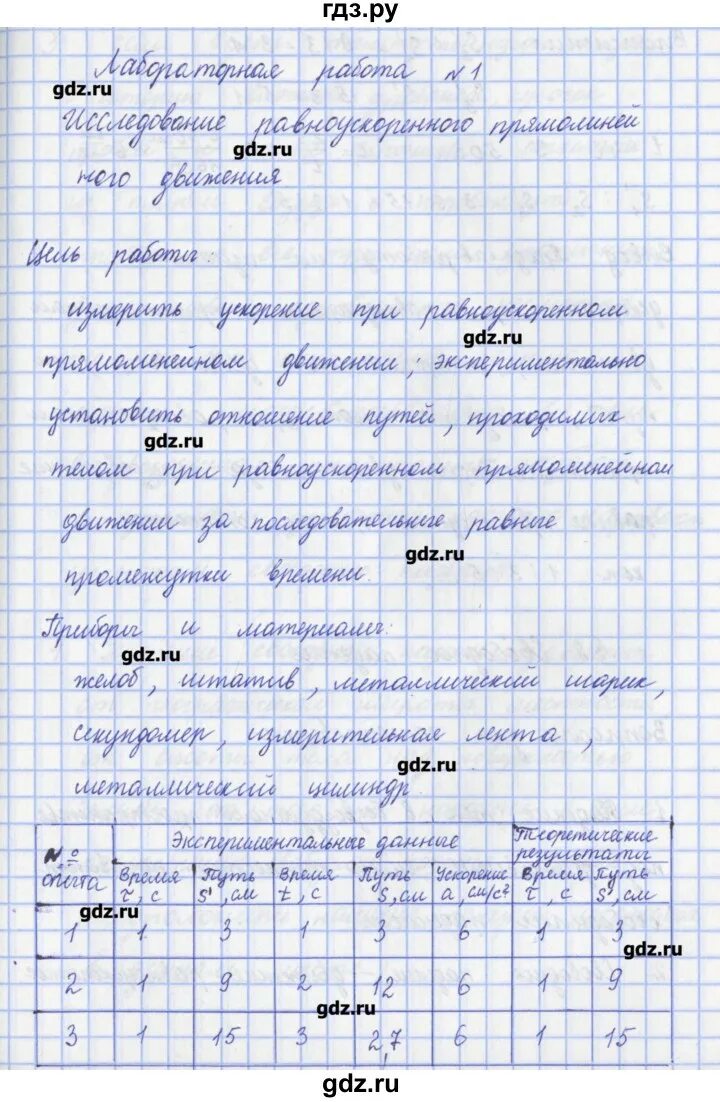 гдз.ру
Лабораторная работа №1
gdz.ru
Исследование равноускоренного прямолиней
gdz.ru
ного движения
Цель работы:
измерить ускорение при равноускоренном
gdz.ru
прямоменейном движении; экспериментально
установить отношение путей, проходимых
gdz.ru
телом при равноускоренном прямолинейном
движении за последовательные равные
gdz.ru
промежутки времени.
Приборы и материалы:
gdz.ru
желоб, штатив, металлический шарик,
секундомер, измерительная лента,
gdz.ru
металлический цилиндр.
№ опыта Экспериментальные данные Теоретические результаты
Время τ, с Путь S', см Время t, с Путь S, см Ускорение a, см/с² Время τ, с Путь S', см
gdz.ru
1 1 3 1 3 6 1 3
gdz.ru
2 1 9 2 12 6 1 9
gdz.ru
3 1 15 3 2,7 6 1 15
gdz.ru